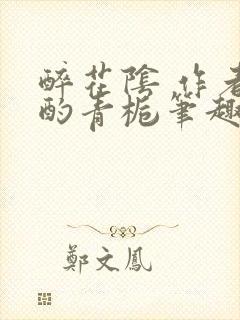 醉花陰 作者
酌青梔筆趣
鄭文鳳